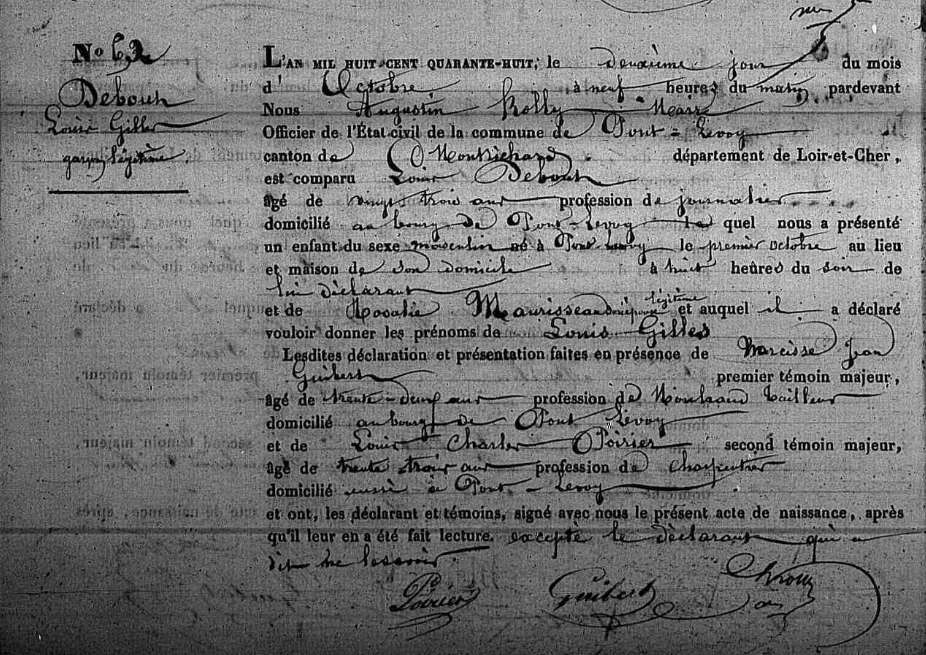 No 62
Debouh
Louis Gilles
garçon légitime
L'AN MIL HUIT CENT QUARANTE-HUIT, le deuxième jour du mois
d' Octobre à neuf heures du matin pardevant
Nous Augustin Rolly Maire
Officier de l'État civil de la commune de Pont-Levoy
canton de Montrichard département de Loir-et-Cher,
est comparu Louis Debouh
âgé de vingt trois ans profession de journalier
domicilié au bourg de Pont-Levoy lequel nous a présenté
un enfant du sexe masculin né à Pont Levoy le premier octobre au lieu
et maison de son domicile à huit heures du soir de
lui déclarant
et de Rosalie légitime et auquel il a déclaré
vouloir donner les prénoms de Louis Gilles
Lesdites déclaration et présentation faites en présence de Narcisse Jean
Guibert premier témoin majeur,
âgé de trente-deux ans profession de Marchand tailleur
domicilié au bourg de Pont Levoy
et de Louis Charles Poirier second témoin majeur,
âgé de trente trois ans profession de charpentier
domicilié aussi à Pont-Levoy
et ont, les déclarant et témoins, signé avec nous le présent acte de naissance, après
qu'il leur en a été fait lecture. excepté le déclarant qui a
dit ne le savoir.
Poirier Guibert